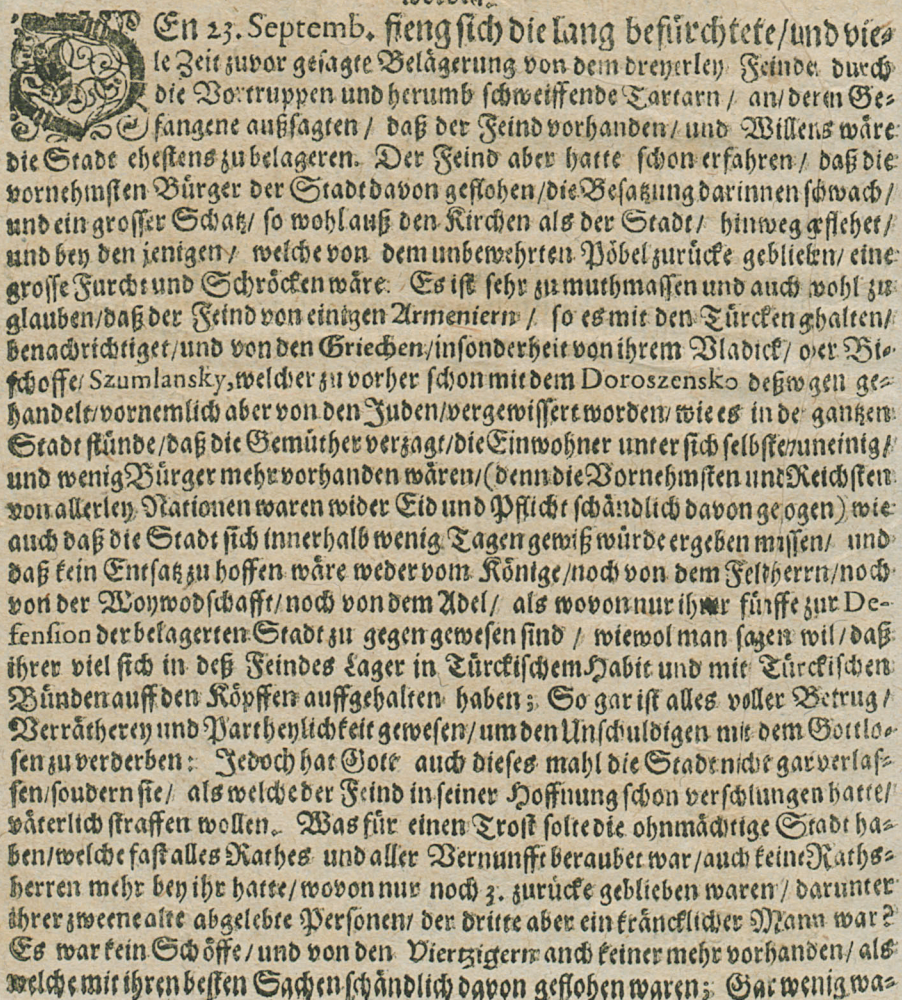 DEn 23. Septemb. fieng sich die lang befürchtete/und vie-
le Zeit zuvor gesagte Belägerung von dem dreyerley Feinde durch
die Vortruppen und herumb schweiffende Tartarn / an/ deren Ge-
fangene außsagten / daß der Feind vorhanden/ und Willens wäre
die Stadt ehestens zu belageren. Der Feind aber hatte schon erfahren / daß die
vornehmsten Bürger der Stadt davon geflohen/die Besatzung darinnen schwach/
und ein grosser Schatz/ so wohl auß den Kirchen als der Stadt/ hinweg geflehet/
und bey den jenigen/ welche von dem unbewehrten Pöbel zurücke geblieben/ eine
grosse Furcht und Schröcken wäre. Es ist sehr zu muthmassen und auch wohl zu
glauben/daß der Feind von einigen Armeniern / so es mit den Türcken ghalten/
benachrichtiget/und von den Griechen/insonderheit von ihrem Vladick/ oder Bi-
schoffe/ Szumlansky, welcher zu vorher schon mit dem Doroszensko deßwgen ge-
handelt/vornemlich aber von den Juden/vergewissert worden/ wie es in de gantzen
Stadt stünde/daß die Gemüther verzagt/die Einwohner unter sich selbsten uneinig/
und wenig Bürger mehr vorhanden wären/(denn die Vornehmsten und Reichsten
von allerley Nationen waren wider Eid und Pflicht schändlich davon gezogen) wie
auch daß die Stadt sich innerhalb wenig Tagen gewiß würde ergeben müssen/ und
daß kein Entsatz zu hoffen wäre weder vom Könige/noch von dem Feldherrn/noch
von der Woywodschafft/noch von dem Adel/ als wovon nur ihrer fünffe zur De-
fension der belagerten Stadt zu gegen gewesen sind / wiewol man sagen wil/daß
ihrer viel sich in deß Feindes Lager in Türckischem Habit und mit Türckischen
Bünden auff den Köpffen auffgehalten haben; So gar ist alles voller Betrug/
Verrätherey und Partheylichkeit gewesen/ um den Unschuldigen mit dem Gottlo-
sen zu verderben: Jedoch hat Gott auch dieses mahl die Stadt nicht gar verlas-
sen/soudern sie/ als welche der Feind in seiner Hoffnung schon verschlungen hatte/
väterlich straffen wollen. Was für einen Trost solte die ohnmächtige Stadt ha-
ben/welche fast alles Rathes und aller Vernunfft beraubet war/auch keine Raths-
herren mehr bey ihr hatte/wovon nur noch 3. zurücke geblieben waren / darunter
ihrer zweene alte abgelebte Personen/ der dritte aber ein kräncklicher Mann war?
Es war kein Schöffe/und von den Viertzigern anch keiner mehr vorhanden/ als
welche mit ihren besten Sachen schändlich davon geflohen waren; Gar wenig wa-